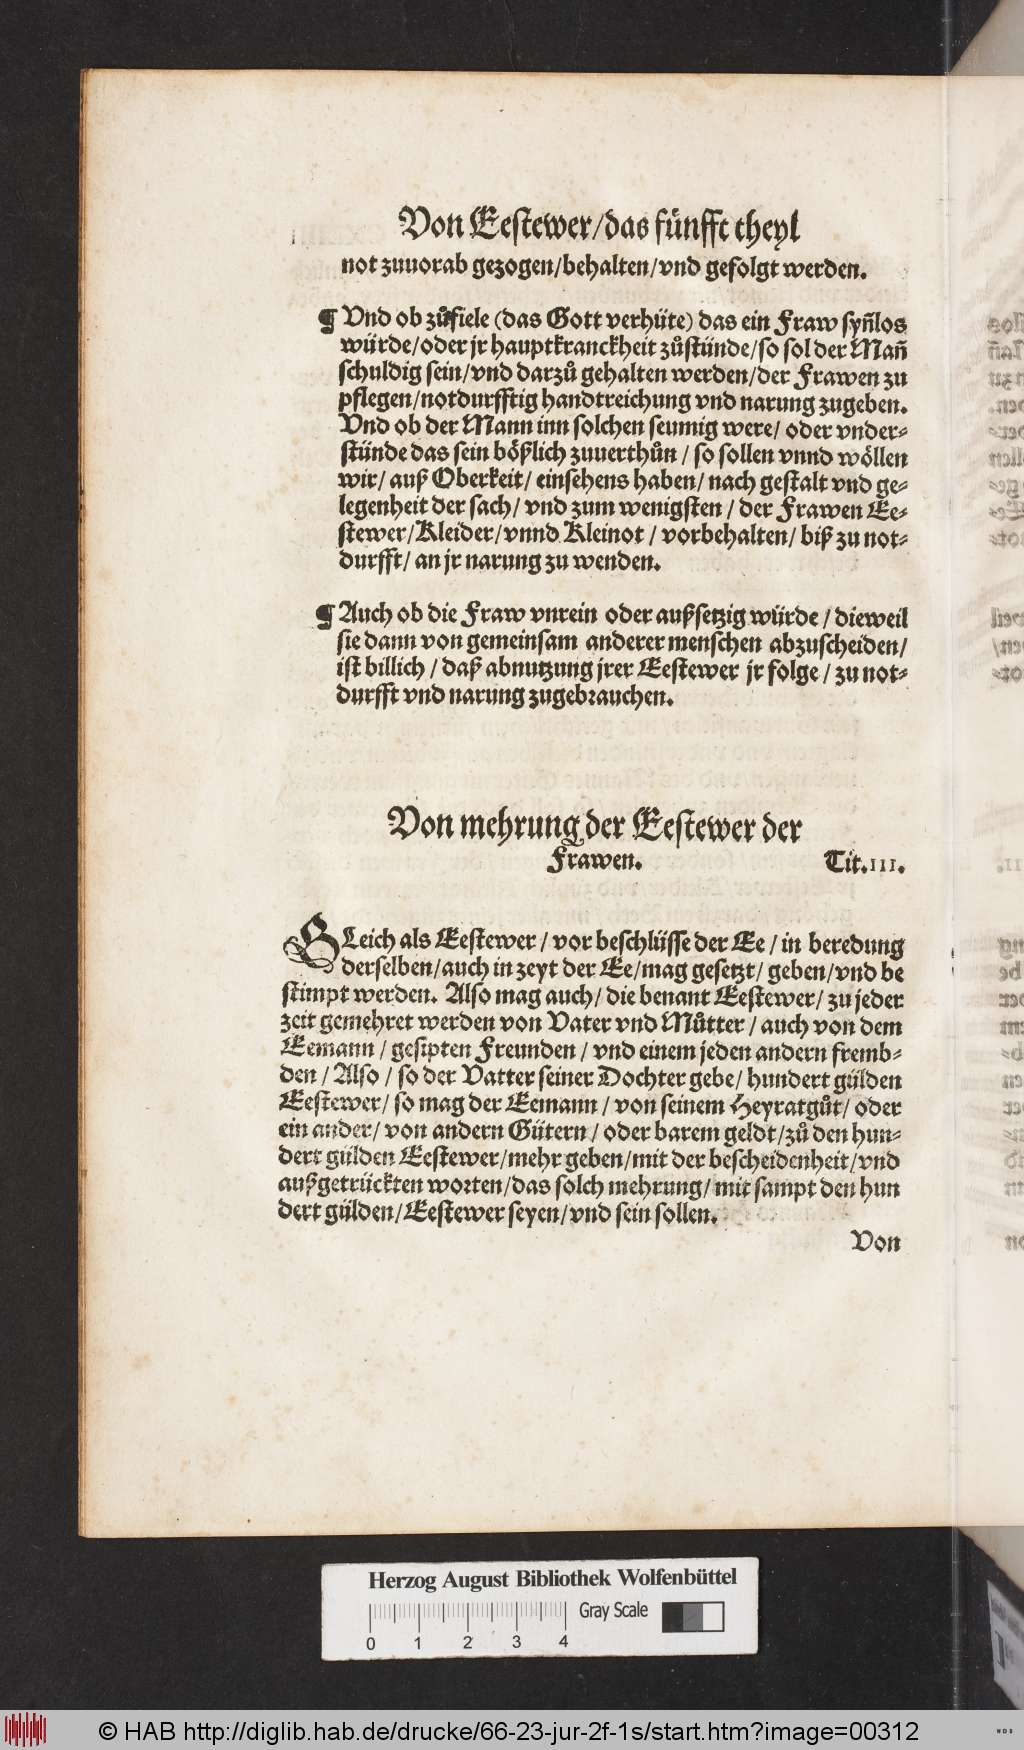 Von Eestewer/das fünfft theyl
not zuuorab gezogen/behalten/vnd gefolgt werden.
¶ Vnd ob zůfiele (das Gott verhüte) das ein Fraw syñlos
würde/oder jr hauptkranckheit zůstünde/so sol der Mañ
schuldig sein/vnd darzů gehalten werden/der Frawen zu
pflegen/notdurfftig handtreichung vnd narung zugeben.
Vnd ob der Mann inn solchen seumig were/ oder vnder-
stünde das sein bößlich zuuerthůn / so sollen vnnd wöllen
wir/ auß Oberkeit/ einsehens haben/ nach gestalt vnd ge-
legenheit der sach/ vnd zum wenigsten / der Frawen Ee-
stewer/Kleider/vnnd Kleinot / vorbehalten/ biß zu not-
durfft/ an jr narung zu wenden.
¶ Auch ob die Fraw vnrein oder außsetzig würde / dieweil
sie dann von gemeinsam anderer menschen abzuscheiden/
ist billich / daß abnutzung jrer Eestewer jr folge / zu not-
durfft vnd narung zugebrauchen.
Von mehrung der Eestewer der
Frawen. Tit.III.
GLeich als Eestewer / vor beschlüsse der Ee / in beredung
derselben/auch in zeyt der Ee/mag gesetzt/ geben/vnd be
stimpt werden. Also mag auch/ die benant Eestewer/ zu jeder
zeit gemehret werden von Vater vnd Můtter / auch von dem
Eemann / gesipten Freunden / vnd einem jeden andern fremb-
den / Also / so der Vatter seiner Dochter gebe/ hundert gülden
Eestewer/ so mag der Eemann / von seinem Heyratgůt/ oder
ein ander/ von andern Gütern / oder barem geldt/zů den hun-
dert gülden Eestewer/mehr geben/mit der bescheidenheit/vnd
außgetrückten worten/das solch mehrung/ mit sampt den hun
dert gülden/Eestewer seyen/vnd sein sollen.
Von
Herzog August Bibliothek Wolfenbüttel
Gray Scale
0 1 2 3 4
© HAB http://diglib.hab.de/drucke/66-23-jur-2f-1s/start.htm?image=00312